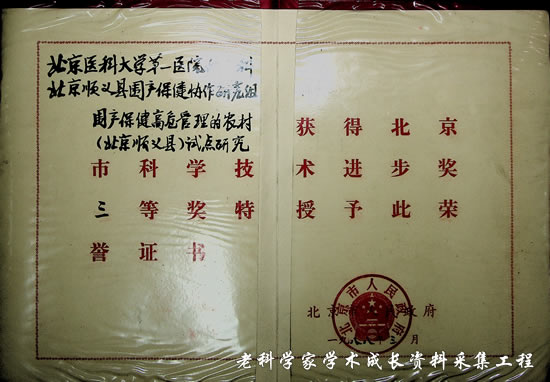 北京医科大学第一医院 科
北京顺义县围产保健协作研究组
围产保健高危管理的农村
(北京顺义县)试点研究
获得北京
市科学技术进步奖
三等奖特授予此荣
誉证书
北京市人民政府
北 府
一九八八年三月
老科学家学术成长资料采集工程